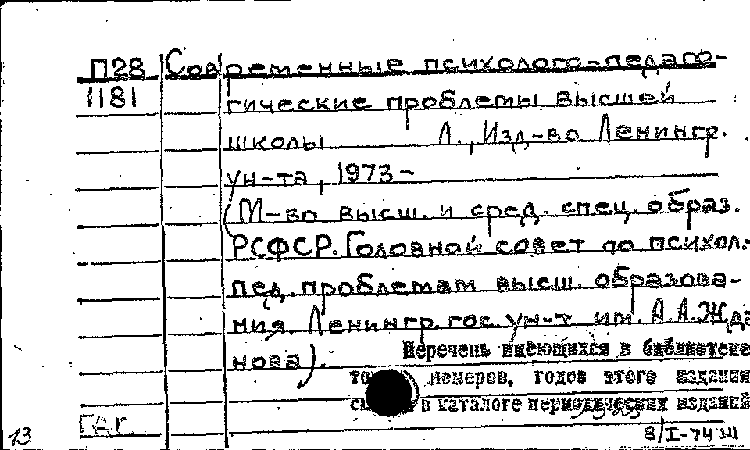 П28 Современные психолого-педаго-
1181 гические проблемы высшей
школы Л., Изд-во Ленингр.
ун-та, 1973-
(М-во высш. и сред. спец. образ.
РСФСР. Головной совет по психол.-
пед. проблемам высш. образова-
ния. Ленингр. гос. ун-т им. А.А. Жда
нова).
Перечень имеющихся в библиотеке
номеров, годов этого издания
в каталоге периодических изданий
8/I-74
13